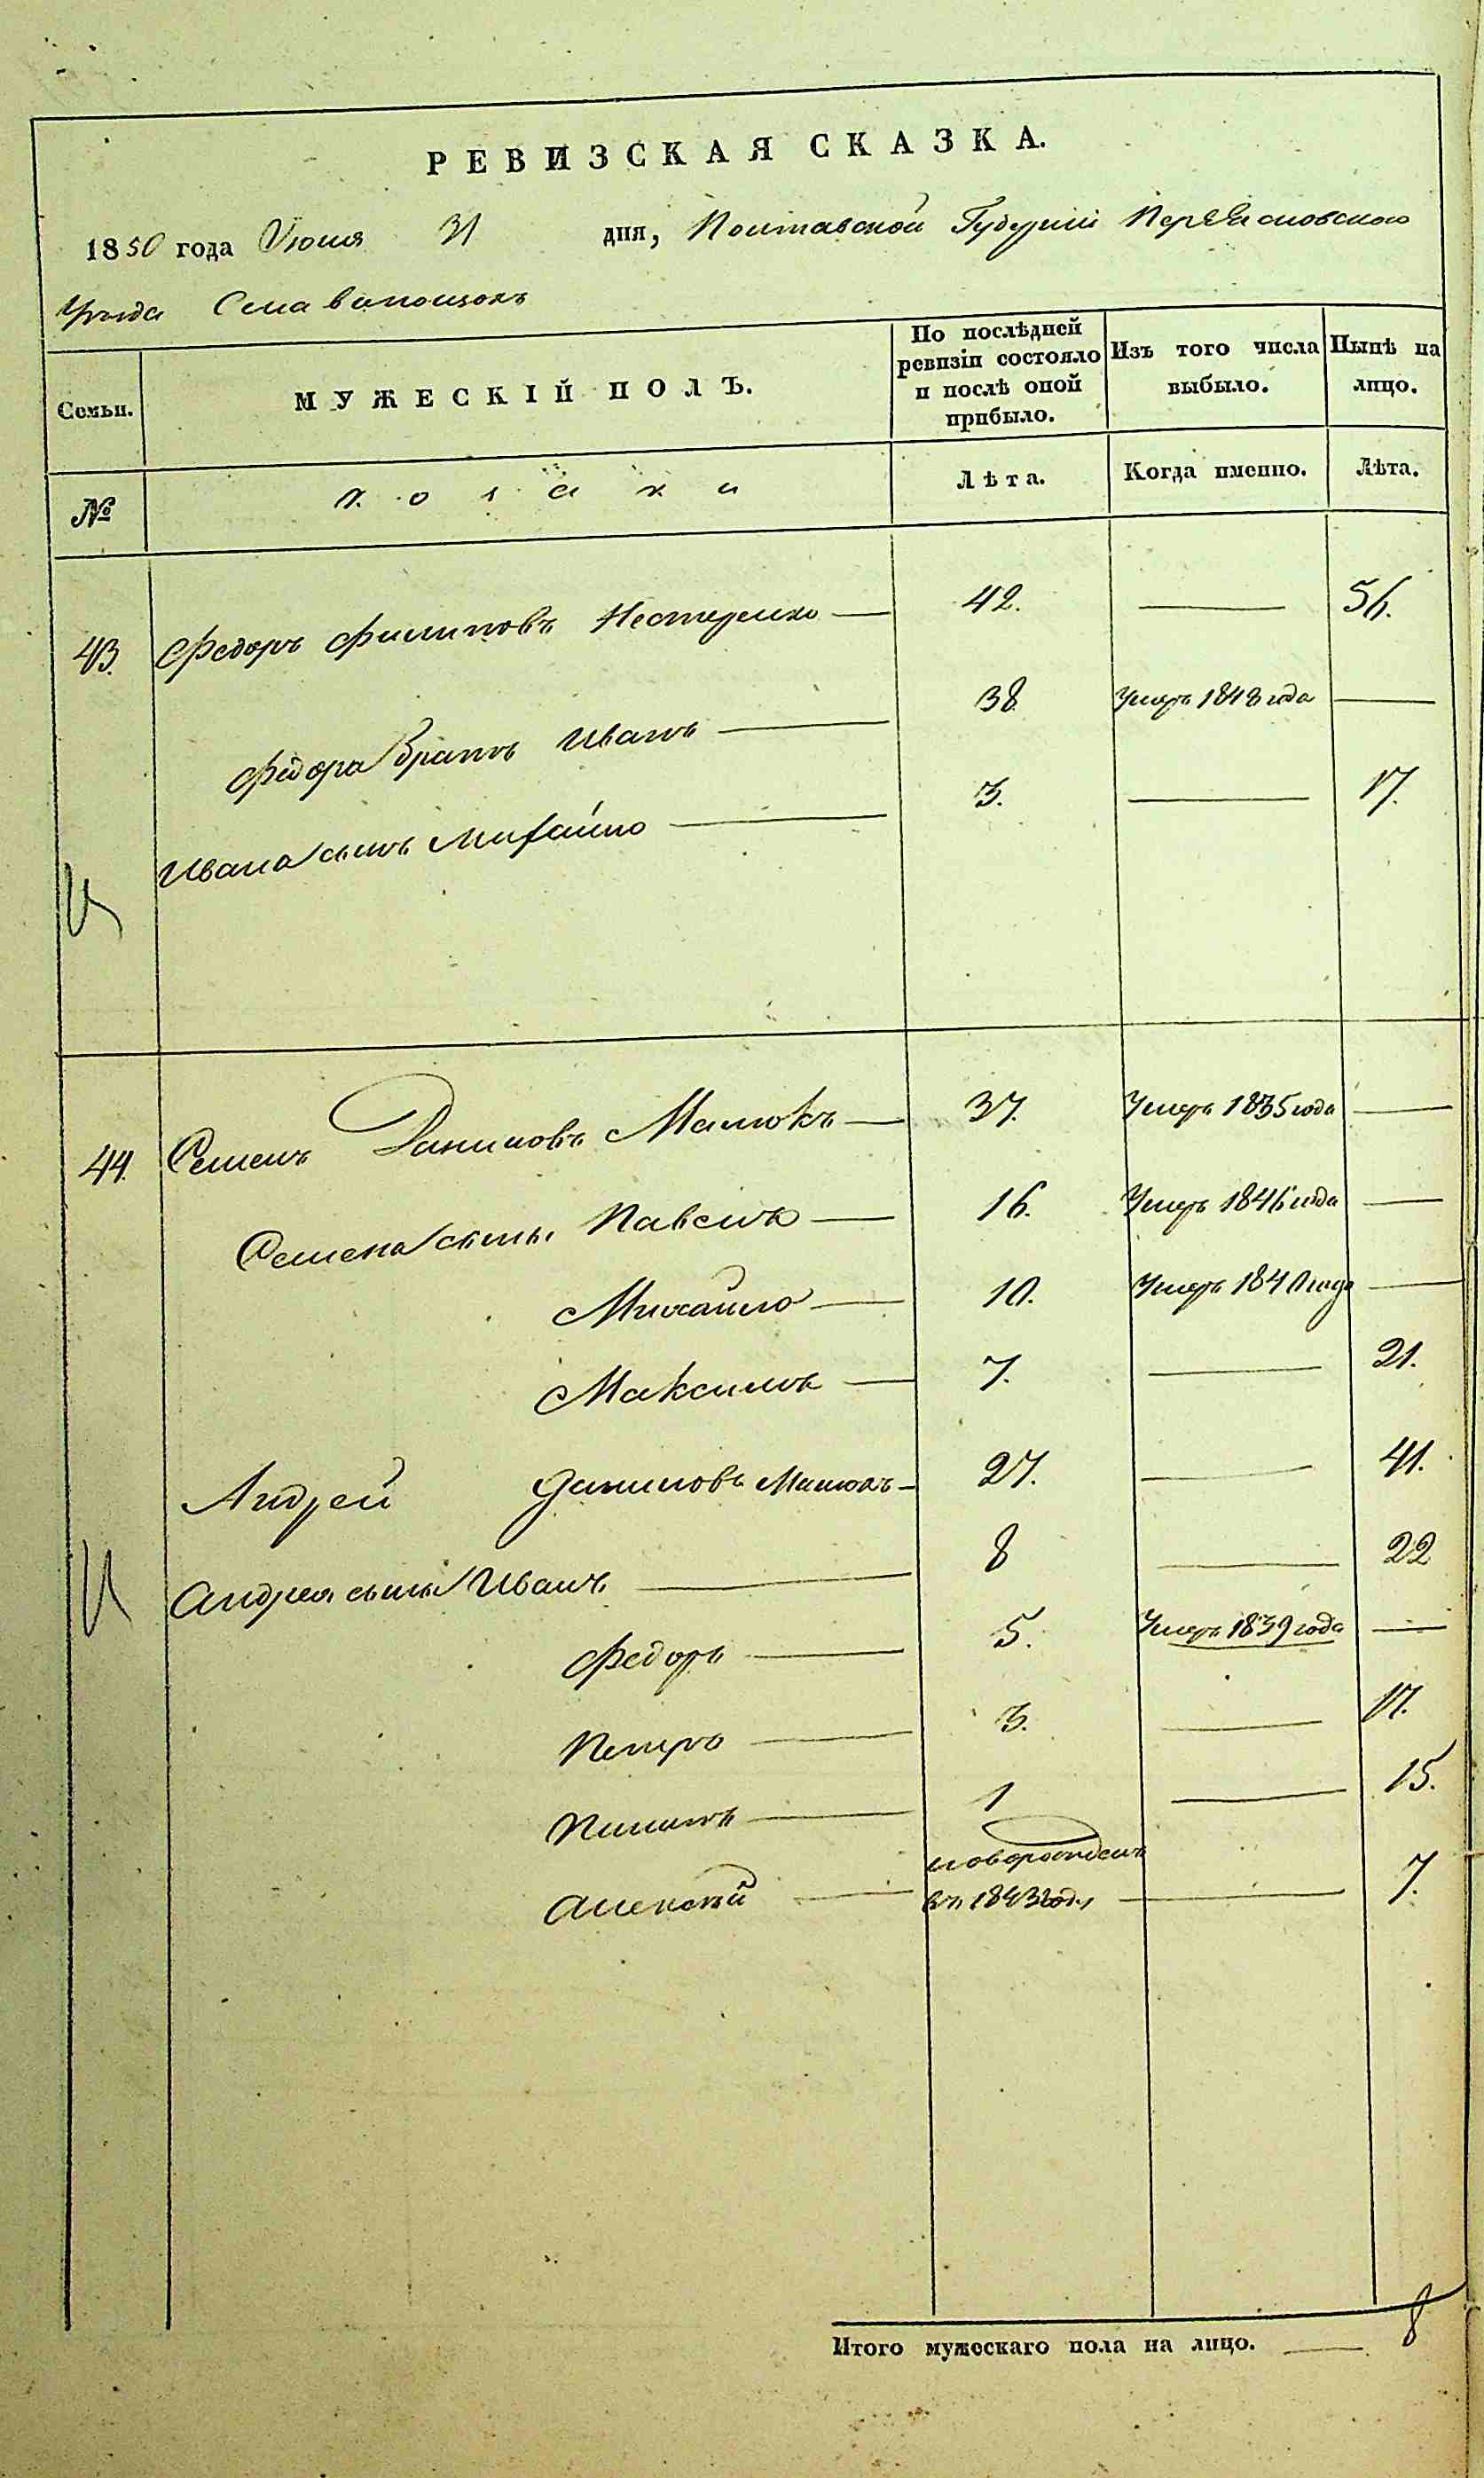 РЕВИЗСКАЯ СКАЗКА.
1850 года Июня 31 дня, Полтавской Губерніи Переясловского
Уѣзда Села
Семьи.
МУЖЕСКІЙ ПОЛЪ.
По послѣдней ревизіи состояло и послѣ оной прибыло.
Изъ того числа выбыло.
Нынѣ на лицо.
№
козаки
Лѣта.
Когда именно.
Лѣта.
43. Федоръ Филиповъ Нестеренко — 42. — 56.
Федора братъ Иванъ — 38 Умеръ 1848 года —
Ивана сынъ Михайло — 3. — 17.
44. Семенъ Даниловъ Малюкъ — 37. Умеръ 1835 года —
Семена сыны Павелъ — 16. Умеръ 1846 года —
Михайло — 10. Умеръ 1840 года —
Максимъ — 7. — 21.
Андрей Даниловъ Малюкъ — 27. — 41.
Андрея сыны Иванъ — 8 — 22
Федоръ — 5. Умеръ 1839 года —
Петръ — 3. — 17.
Пилипъ — 1 — 15.
Алексѣй — новорожденъ въ 1843 году — 7.
Итого мужескаго пола на лицо. — 8